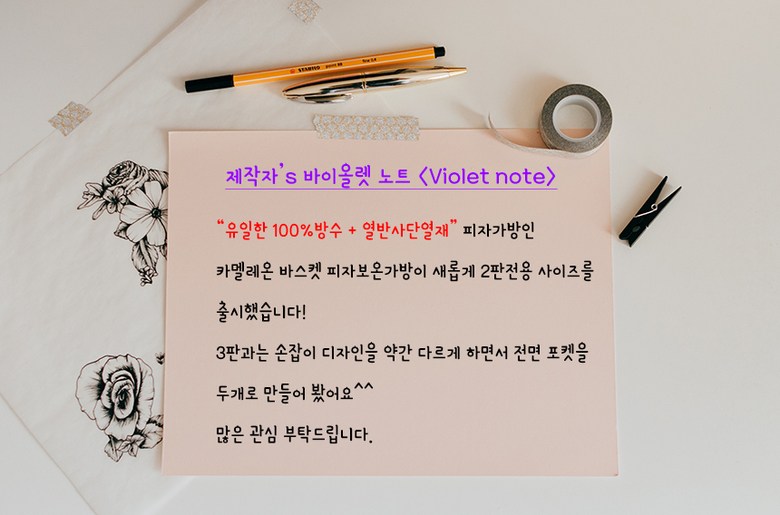 STABILO point 88 fine 0,4
제작자's 바이올렛 노트 <Violet note>
“유일한 100%방수 + 열반사단열재” 피자가방인
카멜레온 바스켓 피자보온가방이 새롭게 2판전용 사이즈를
출시했습니다!
3판과는 손잡이 디자인을 약간 다르게 하면서 전면 포켓을
두개로 만들어 봤어요^^
많은 관심 부탁드립니다.